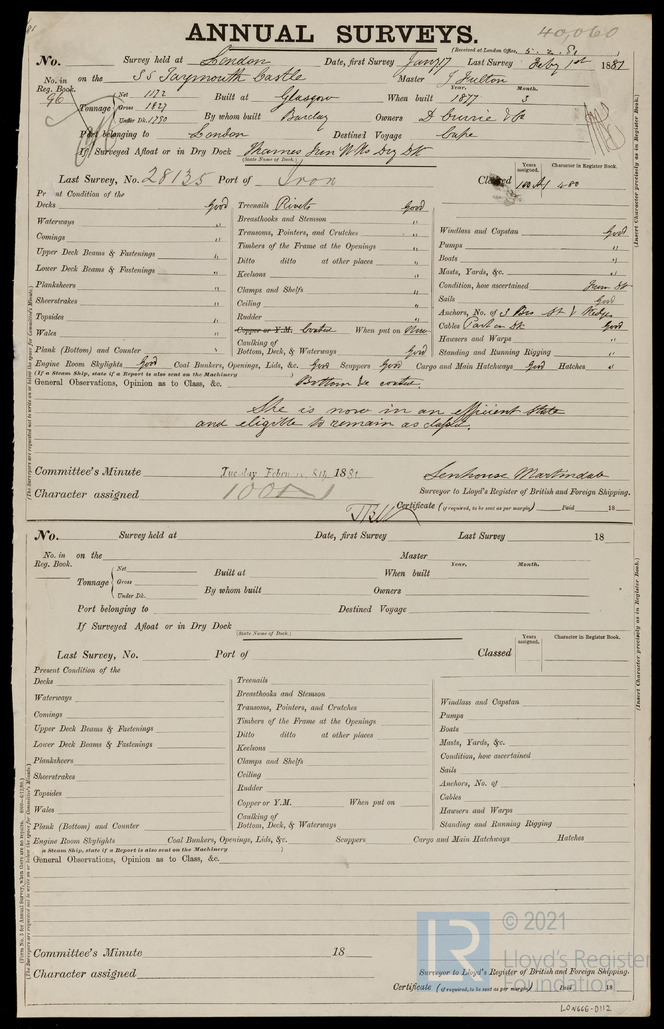 ANNUAL SURVEYS.
40,060
(Received at London Office, 5. 2. 81 )
No. Survey held at London Date, first Survey Jany 17 Last Survey Feby 1st 1881
No. in Reg. Book. 96 on the SS Taymouth Castle Master J Fulton
Tonnage Net 1172 Gross 1827 Under Dk. 1750 Built at Glasgow When built Year. 1877 Month. 3
By whom built Barclay Owners D Currie & Co
Port belonging to London Destined Voyage Cape
If Surveyed Afloat or in Dry Dock Thames Iron Wks Dry Dk
(State Name of Dock.)
Last Survey, No. 28135 Port of Iron Classed Years assigned. 100 A1 Character in Register Book. 4-80
Present Condition of the
Decks Good Treenails Rivets Good
Waterways " Breasthooks and Stemson " Windlass and Capstan Good
Comings " Transoms, Pointers, and Crutches " Pumps "
Upper Deck Beams & Fastenings " Timbers of the Frame at the Openings " Boats "
Lower Deck Beams & Fastenings " Ditto ditto at other places " Masts, Yards, &c. "
Planksheers " Keelsons " Condition, how ascertained from Dk
Sheerstrakes " Clamps and Shelfs " Sails Good
Topsides " Ceiling " Anchors, No. of 3 Brs St & Kedge
Wales " Rudder " Cables Part on Dk Good
Copper or Y.M. Coated When put on Now Hawsers and Warps "
Plank (Bottom) and Counter " Caulking of Bottom, Deck, & Waterways Good Standing and Running Rigging "
Engine Room Skylights Good Coal Bunkers, Openings, Lids, &c. Good Scuppers Good Cargo and Main Hatchways Good Hatches "
(If a Steam Ship, state if a Report is also sent on the Machinery )
General Observations, Opinion as to Class, &c. Bottom &c coated
She is now in an efficient state
and eligible to remain as classed.
Committee's Minute Tuesday February 8th 1881 Senhouse Martindale
Character assigned 100A1 Surveyor to Lloyd's Register of British and Foreign Shipping.
Certificate (if required, to be sent as per margin) Paid 18
(Insert Character precisely as in Register Book.)
(The Surveyors are requested not to write on or below the space for Committee's Minute.)
No. Survey held at Date, first Survey Last Survey 18
No. in Reg. Book. on the Master
Tonnage Net Gross Under Dk. Built at When built Year. Month.
By whom built Owners
Port belonging to Destined Voyage
If Surveyed Afloat or in Dry Dock
(State Name of Dock.)
Last Survey, No. Port of Classed Years assigned. Character in Register Book.
Present Condition of the
Decks Treenails
Waterways Breasthooks and Stemson Windlass and Capstan
Comings Transoms, Pointers, and Crutches Pumps
Upper Deck Beams & Fastenings Timbers of the Frame at the Openings Boats
Lower Deck Beams & Fastenings Ditto ditto at other places Masts, Yards, &c.
Planksheers Keelsons Condition, how ascertained
Sheerstrakes Clamps and Shelfs Sails
Topsides Ceiling Anchors, No. of
Wales Rudder Cables
Copper or Y.M. When put on Hawsers and Warps
Plank (Bottom) and Counter Caulking of Bottom, Deck, & Waterways Standing and Running Rigging
Engine Room Skylights Coal Bunkers, Openings, Lids, &c. Scuppers Cargo and Main Hatchways Hatches
a Steam Ship, state if a Report is also sent on the Machinery )
General Observations, Opinion as to Class, &c.
Committee's Minute 18
Character assigned Surveyor to Lloyd's Register of British and Foreign Shipping.
Certificate (if required, to be sent as per margin) Paid 18
(Insert Character precisely as in Register Book.)
(The Surveyors are requested not to write on or below the space for Committee's Minute.)
LR © 2021
Lloyd's Register
Foundation
LON666-0112